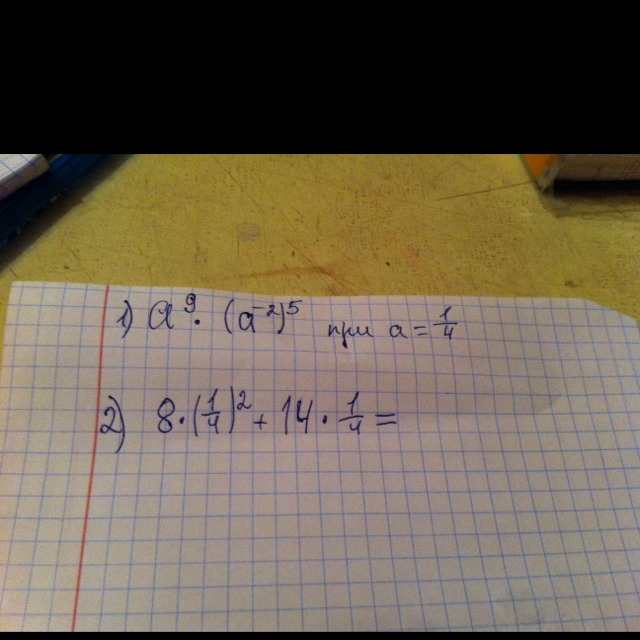 1) a⁹ · (a⁻²)⁵ при a = 1/4
2) 8 · (1/4)² + 14 · 1/4 =